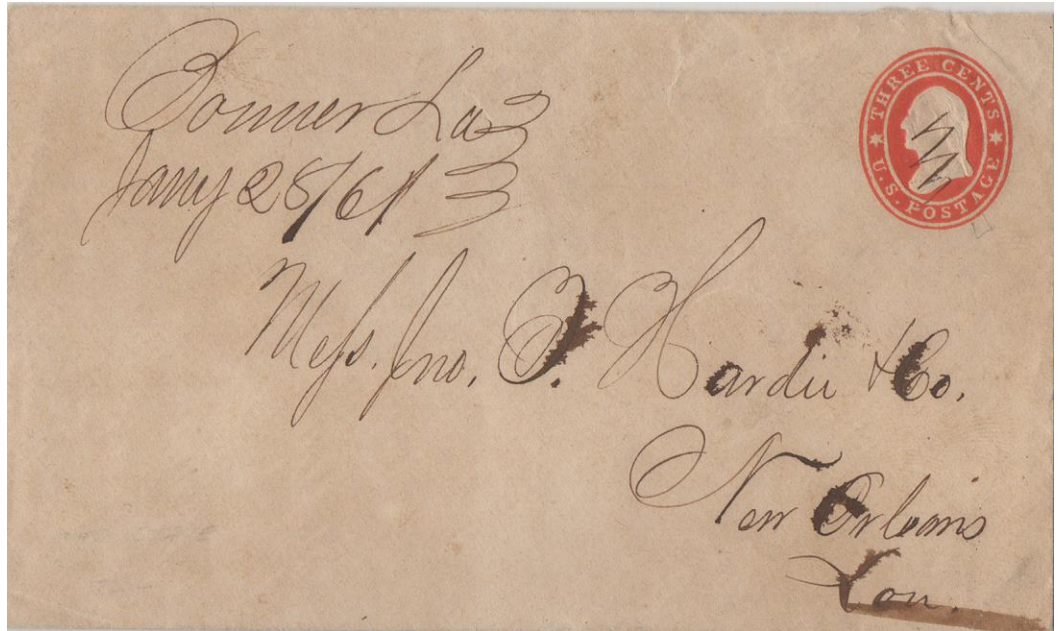 Bonner La
Jany 28/61
THREE CENTS
U.S. POSTAGE
Mess. Jno. T. Hardie & Co.
New Orleans
Lou.